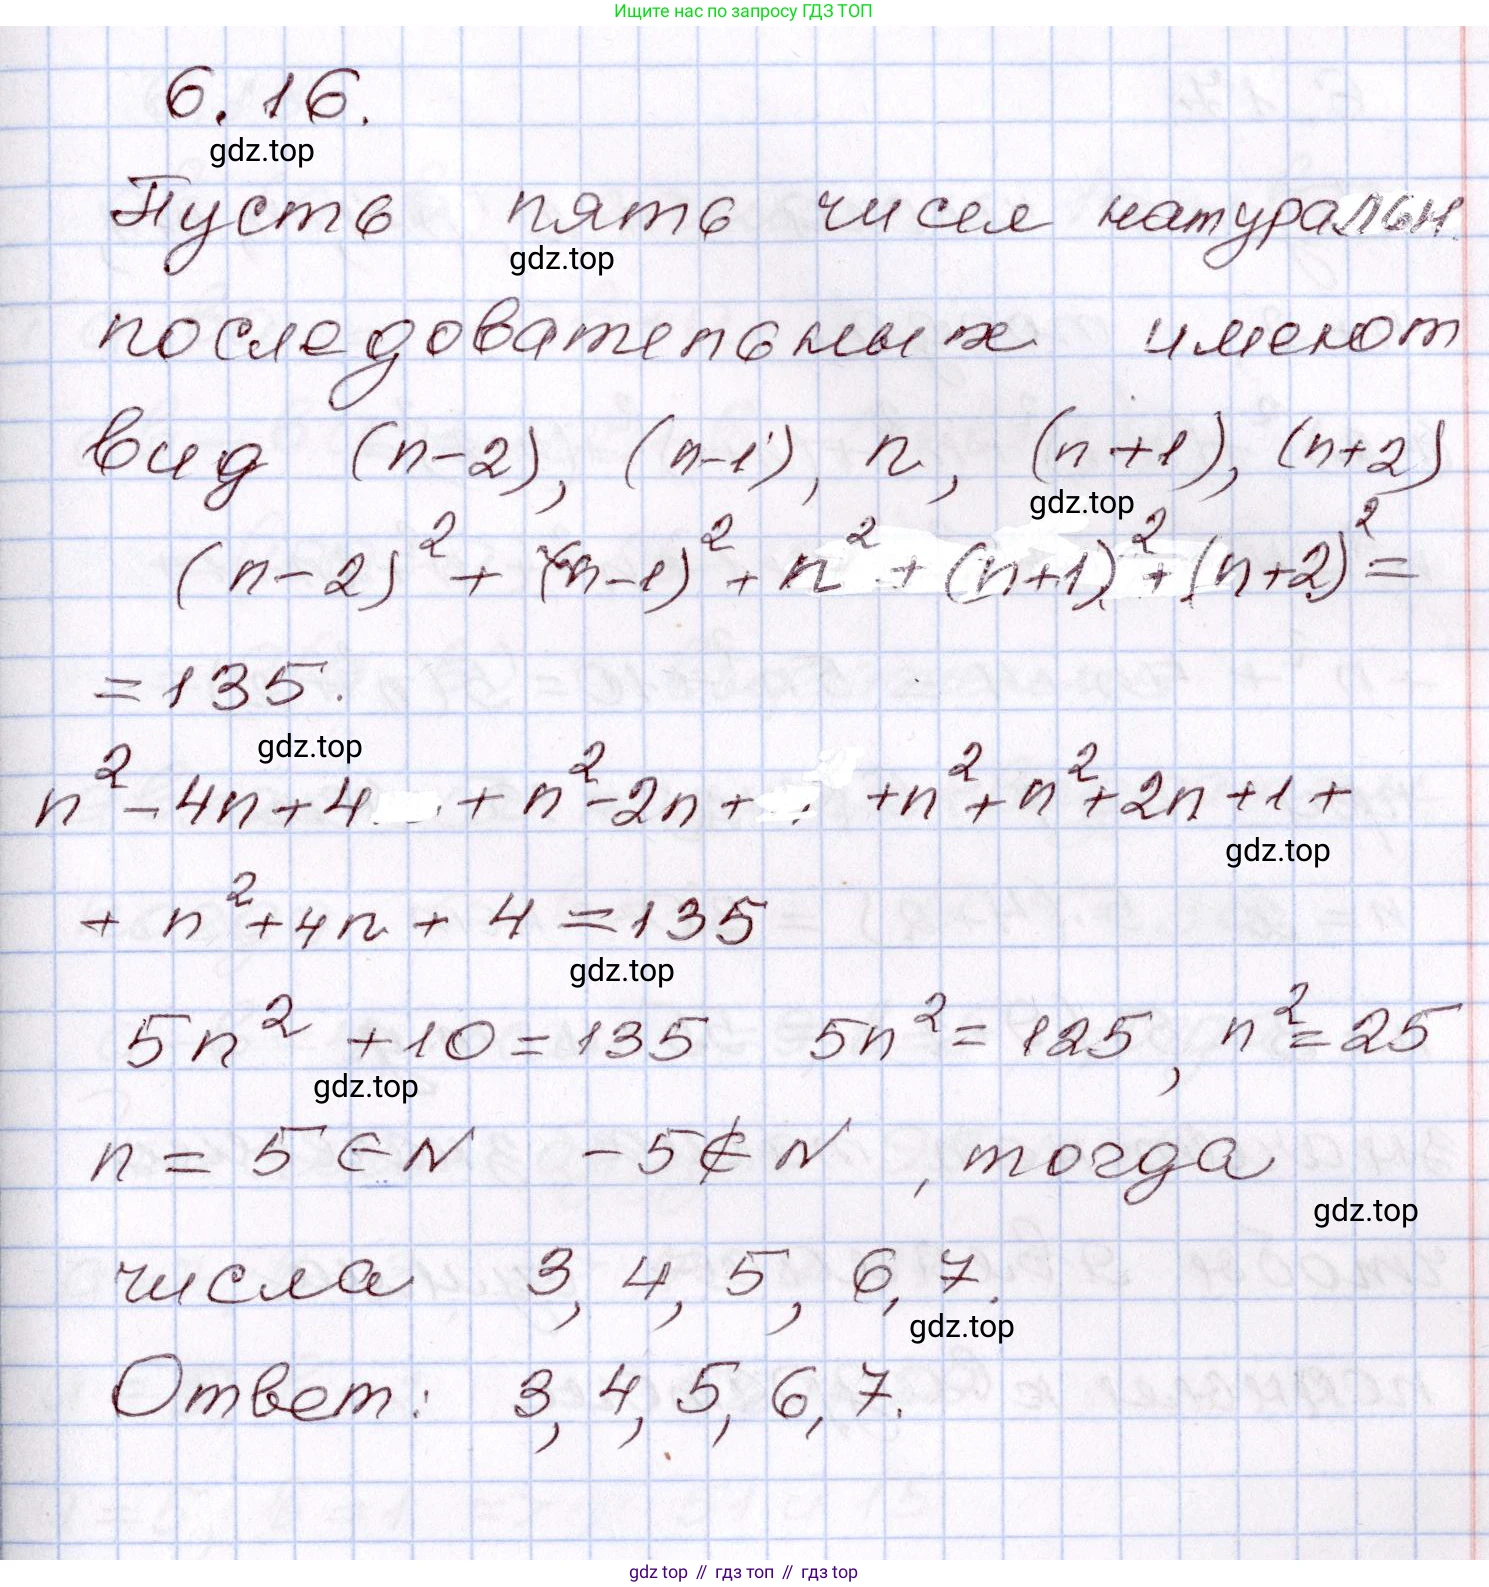 Ищите нас по запросу ГДЗ ТОП
6.16.
gdz.top
Пусть пять чисел натуральн.
gdz.top
последовательных имеют
вид (n-2), (n-1), n, (n+1), (n+2)
gdz.top
(n-2)² + (n-1)² + n² + (n+1)² + (n+2)² =
= 135.
gdz.top
n² - 4n + 4 + n² - 2n + + n² + n² + 2n + 1 +
gdz.top
+ n² + 4n + 4 = 135
gdz.top
5n² + 10 = 135 5n² = 125, n² = 25
gdz.top
n = 5 ∈ N -5 ∉ N, тогда
gdz.top
числа 3, 4, 5, 6, 7.
gdz.top
Ответ: 3, 4, 5, 6, 7.
gdz.top // гдз топ // гдз top